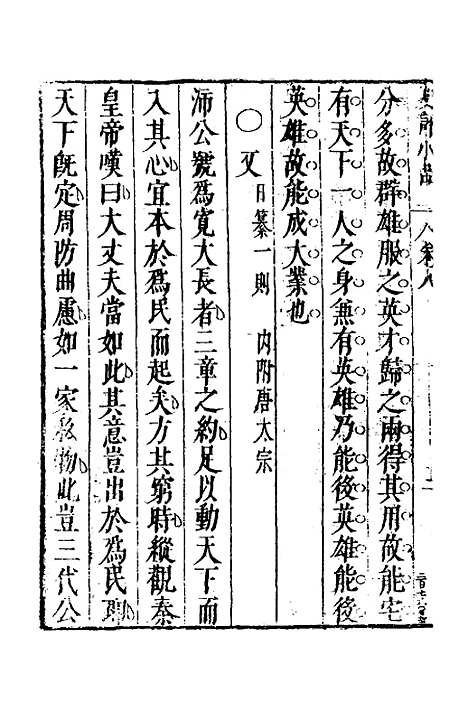 史評小品 卷八
分多故群雄服之英才歸之兩得其用故能宅
有天下一人之身無有英雄乃能後英雄能後
英雄故能成大業也
○ 又 日纂一則 內附唐太宗
沛公號爲寬大長者三章之約足以動天下而
入其心宜本於爲民而起矣方其窮時縱觀秦
皇帝嘆曰大丈夫當如此其意豈出於爲民耶
天下旣定周防曲慮如一家私物此豈三代公